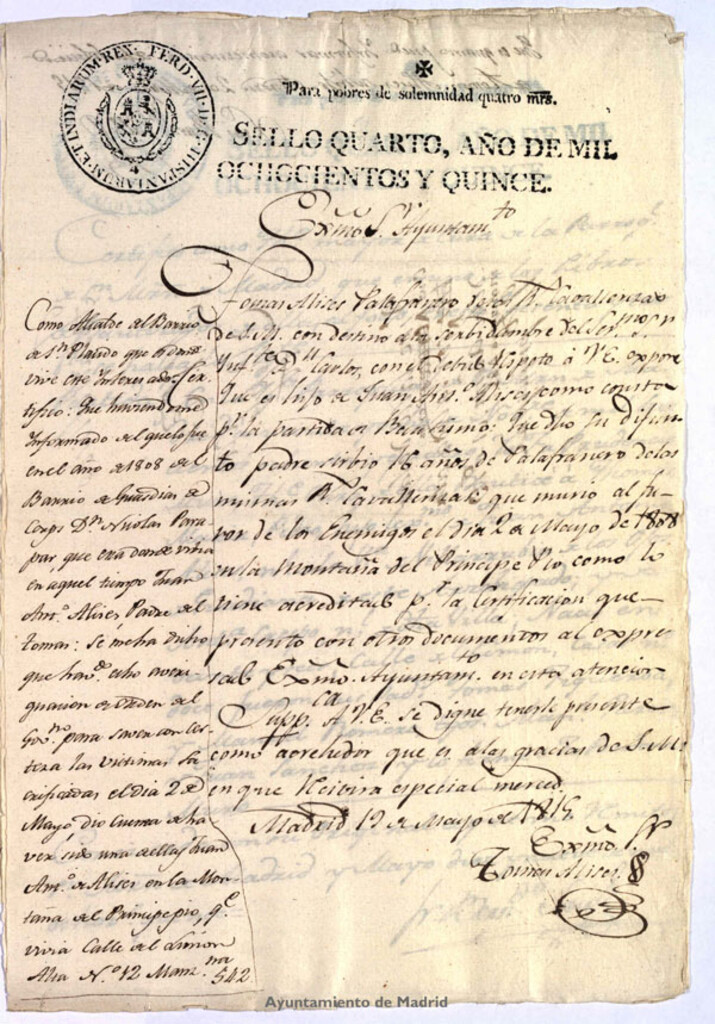 FERD·VII·D·G·HISPANIARUM·ET INDIARUM·REX·
Para pobres de solemnidad quatro mrs.
SELLO QUARTO, AÑO DE MIL
OCHOCIENTOS Y QUINCE.
Exmo Sr Ayuntamto
Tomas Alises Palafranero de las Rs Cavallerizas
de S.M. con destino a la serbidumbre del Sermo Sr
Infte Dn Carlos, con el debido respeto á V.E. expone
Que es hijo de Juan Anto Alises como consta
pr la partida de Bautismo: Que dho su difun-
to padre sirbio 16 años de Palafranero de las
mismas Rs Cavallerizas que murio al fu-
ror de los Enemigos el dia 2 de Mayo de 1808
en la Montaña del Principe Pio, como lo
tiene acreditado pr la Certificacion que
presento con otros documentos al expre-
sado Exmo Ayuntamto en esta atencion
Suppca A V.E. se digne tenerle presente
como acrehedor que es a las gracias de S.M.
en que recivira especial merced.
Madrid 19 de Mayo de 1815.
Exmo Sr
Tomas Alises
Como Alcalde del Barrio
de Sn Placido que
vive este Interesado: Cer-
tifico: Que haviendome
Informado del que lo fue
en el año de 1808 del
Barrio de Guardias de
Corps Dn Nicolas Para-
par que era donde vivia
en aquel tiempo Juan
Anto Alises, Padre del
tomas: se me ha dicho
que havdo echo averi-
guacion de orden del
Govno para saver con cer-
teza las victimas Sa-
crificadas el dia 2 de
Mayo, dio cuenta de ha-
ver sido una de ellas Juan
Anto de Alises en la Mon-
taña del Principe pio, qe
vivia Calle del Limon
Alta No 12 Manzna 542
Ayuntamiento de Madrid